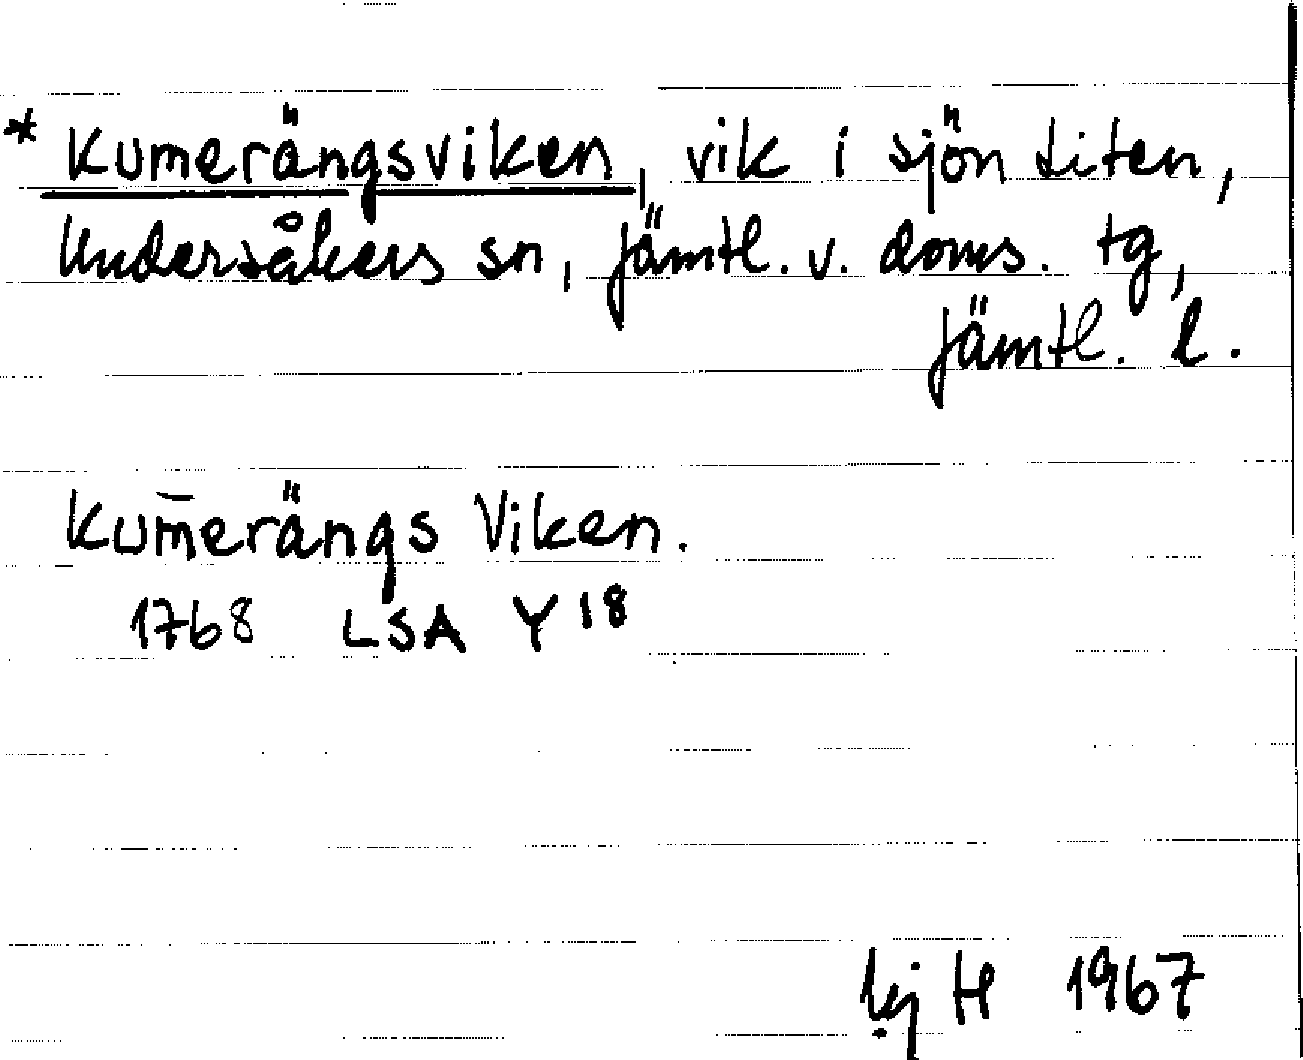 * Kumerängsviken, vik i sjön Liten,
Undersåkers sn, Jämtl. v. doms. tg,
Jämtl. l.
Kum̄erängs Viken.
1768 LSA Y 18
H 1967